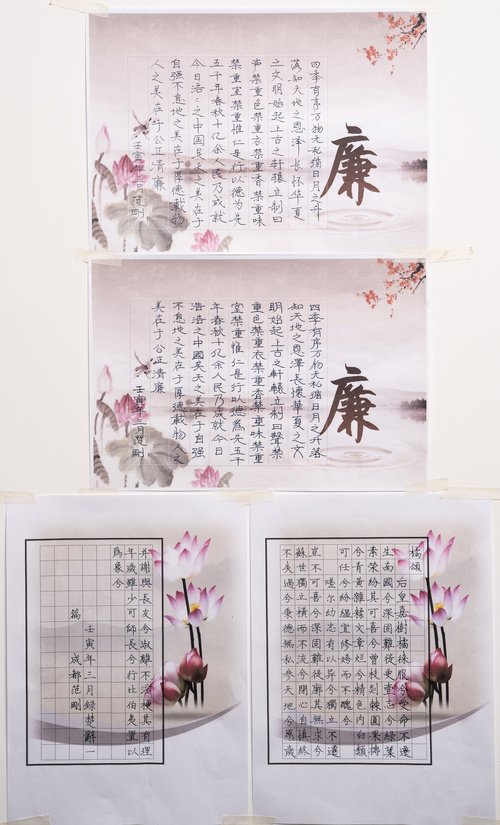 四季有序万物无私循日月之升
落知天地之恩泽长怀华夏
之文明始起上古之轩辕立制曰
声禁重色禁重衣禁重香禁重味
禁重室禁重惟仁是行以德为先
五千年春秋十亿余人民乃成就
今日浩：之中国矣天之美在于
自强不息地之美在于厚德载物
人之美在于公正清廉
壬寅年三月范剛
廉
四季有序万物无私循日月之升落
知天地之恩澤長懷華夏之文
明始起上古之軒轅立制曰聲禁
重色禁重衣禁重香禁重味禁重
室禁重惟仁是行以德為先五千
年春秋十亿余人民乃成就今日
浩浩之中國矣天之美在于自强
不息地之美在于厚德載物人之
美在于公正清廉
壬寅年三月范剛
廉
橘頌
后皇嘉樹橘徠服兮受命不遷
生南國兮深固難徙更壹志兮綠葉
素榮紛其可喜兮曾枝剡棘圓果摶
兮青黃雜糅文章爛兮精色內白類
可任兮紛縕宜修姱而不醜兮
嗟尔幼志有以異兮獨立不遷
豈不可喜兮深固難徙廓其無求兮
蘇世獨立橫而不流兮閉心自慎終
不失過兮秉德無私參天地兮願歲
并謝與長友兮淑離不淫梗其有理
年歲雖少可師長兮行比伯夷置以
爲象兮
壬寅年三月録楚辭一
篇 成都范剛